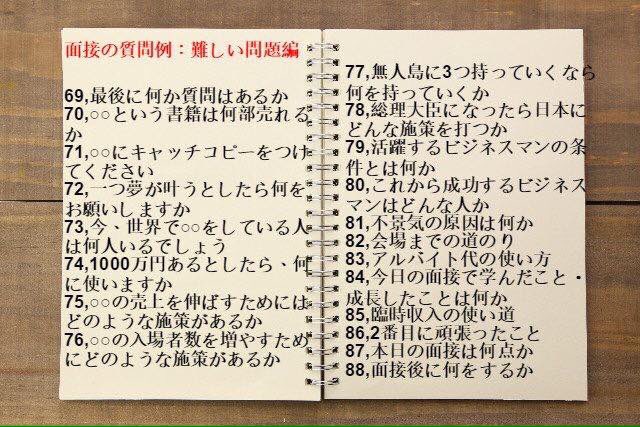 面接の質問例：難しい問題編
69,最後に何か質問はあるか
70,○○という書籍は何部売れる
か
71,○○にキャッチコピーをつけ
てください
72,一つ夢が叶うとしたら何を
お願いしますか
73,今、世界で○○をしている人
は何人いるでしょう
74,1000万円あるとしたら、何
に使いますか
75,○○の売上を伸ばすためには
どのような施策があるか
76,○○の入場者数を増やすため
にどのような施策があるか
77,無人島に3つ持っていくなら
何を持っていくか
78,総理大臣になったら日本に
どんな施策を打つか
79,活躍するビジネスマンの条
件とは何か
80,これから成功するビジネス
マンはどんな人か
81,不景気の原因は何か
82,会場までの道のり
83,アルバイト代の使い方
84,今日の面接で学んだこと・
成長したことは何か
85,臨時収入の使い道
86,2番目に頑張ったこと
87,本日の面接は何点か
88,面接後に何をするか